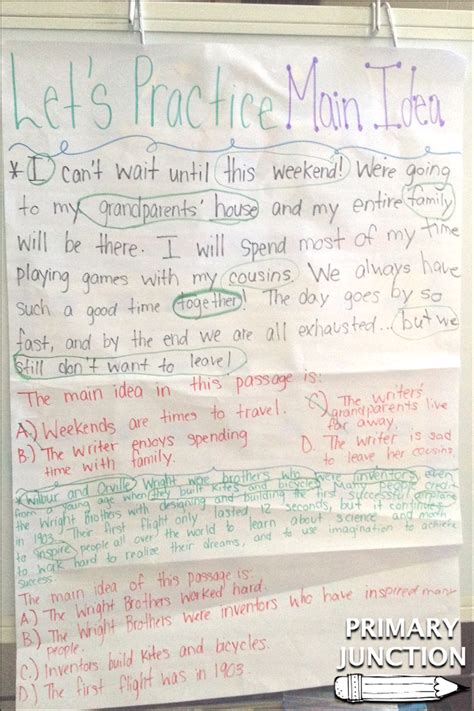 Let's Practice Main Idea
* I can't wait until this weekend! We're going
to my grandparents' house and my entire family
will be there. I will spend most of my time
playing games with my cousins. We always have
such a good time together! The day goes by so
fast, and by the end we are all exhausted... but we
still don't want to leave!
The main idea in this passage is:
A.) Weekends are times to travel.
B.) The writer enjoys spending
time with family.
C.) The writers'
grandparents live
far away.
D. The writer is sad
to leave her cousins.
*Wilbur and Orville Wright were brothers who were inventors even
from a young age when they built kites and bicycles. Many people credit
the Wright Brothers with designing and building the first successful airplane
in 1903. Their first flight only lasted 12 seconds, but it continues
to inspire people all over the world to learn about science and math
to work hard to realize their dreams, and to use imagination to achieve
success.
The main idea of this passage is:
A.) The Wright Brothers worked hard.
B.) The Wright Brothers were inventors who have inspired many
people.
C.) Inventors build kites and bicycles.
D.) The first flight was in 1903.
PRIMARY
JUNCTION